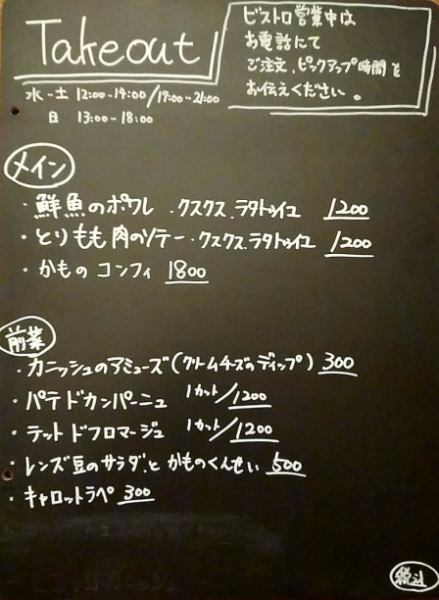 Takeout
ビストロ営業中は
お電話にて
ご注文、ピックアップ時間を
お伝えください。
水-土 12:00-14:00/17:00-21:00
日 13:00-18:00
メイン
・鮮魚のポワレ・クスクス、ラタトゥイユ 1200
・とりもも肉のソテー・クスクス、ラタトゥイユ 1200
・かものコンフィ 1800
前菜
・カニッシュのアミューズ(クリームチーズのディップ) 300
・パテドカンパーニュ 1カット/1200
・テットドフロマージュ 1カット/1200
・レンズ豆のサラダ、とかものくんせい 500
・キャロットラペ 300
税込